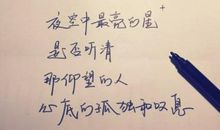 夜空中最亮的星
是否听清
那仰望的人
心底的孤独和叹息